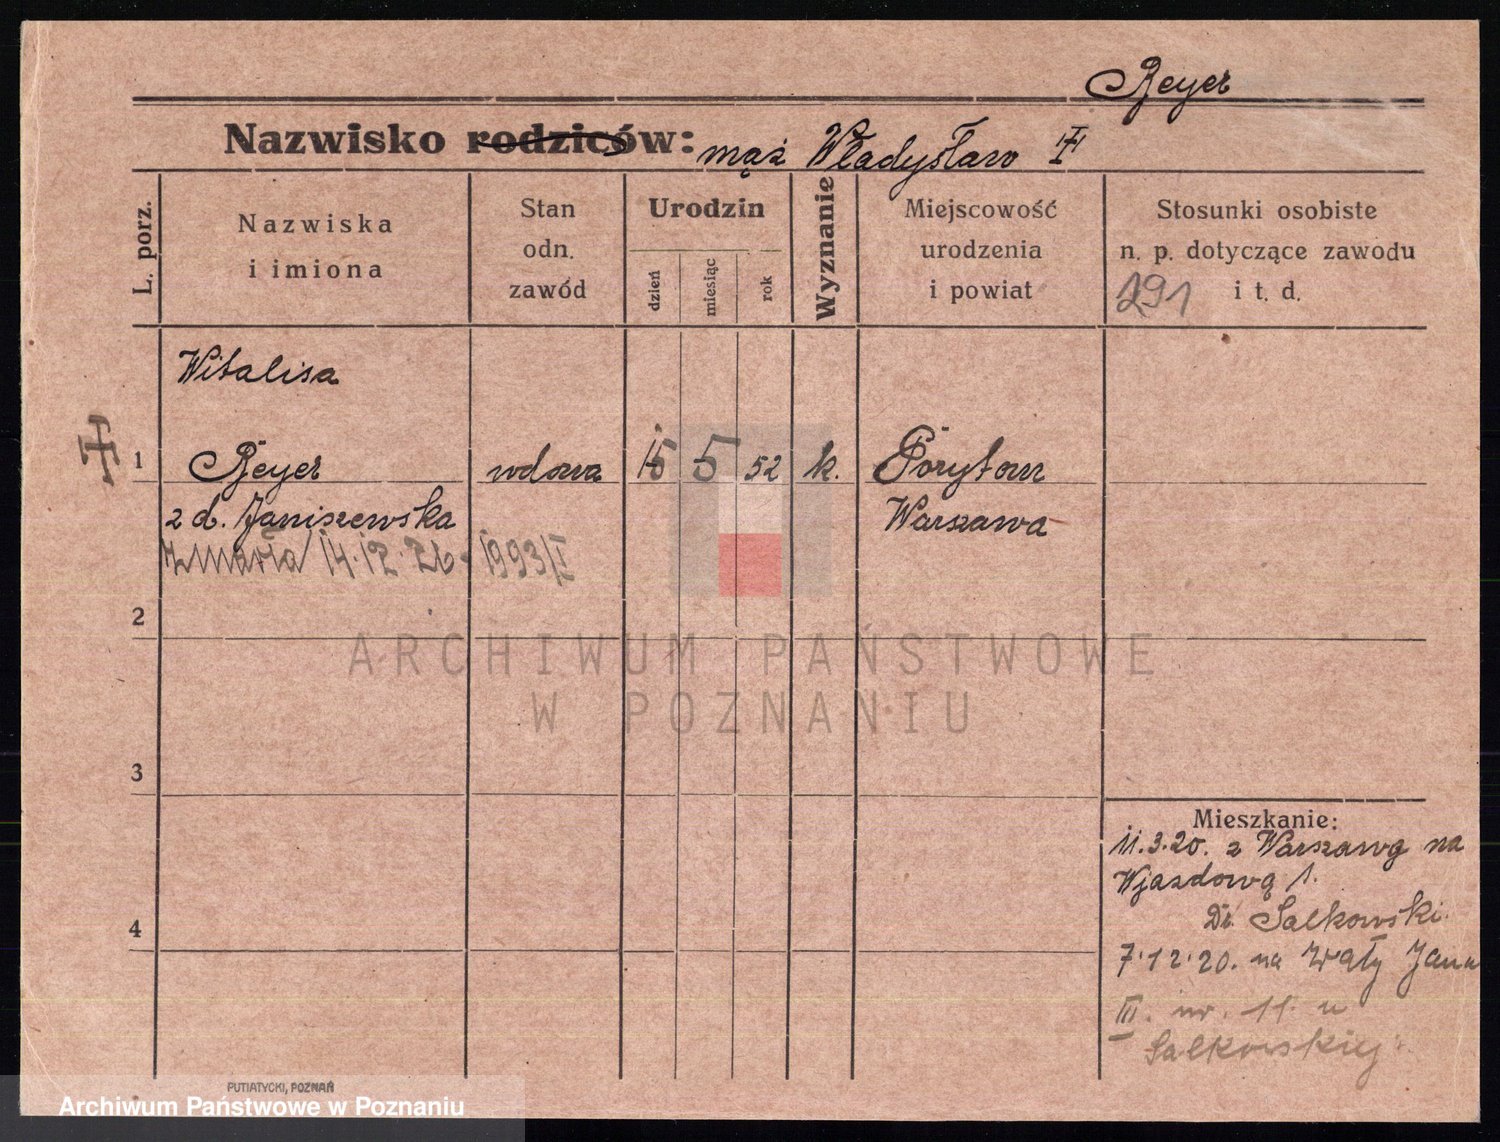 Reyer
Nazwisko rodziców: mąż Władysław
L. porz.
Nazwiska
i imiona
Stan
odn.
zawód
Urodzin
dzień
miesiąc
rok
Wyznanie
Miejscowość
urodzenia
i powiat
Stosunki osobiste
n. p. dotyczące zawodu
i t. d.
291
Witalisa
1 Reyer wdowa 15 5 52 k. Poryton
z d. Janiszewska Warszawa
zmarła 14.12.26. 1993/I
2
ARCHIWUM PAŃSTWOWE
W POZNANIU
3
Mieszkanie:
11.3.20. z Warszawy na
Wjazdową 1.
Dr. Salkowski.
4
7.12.20. na Wały Jana
III. nr. 11. u
Salkowskiej.
PUTIATYCKI, POZNAŃ
Archiwum Państwowe w Poznaniu